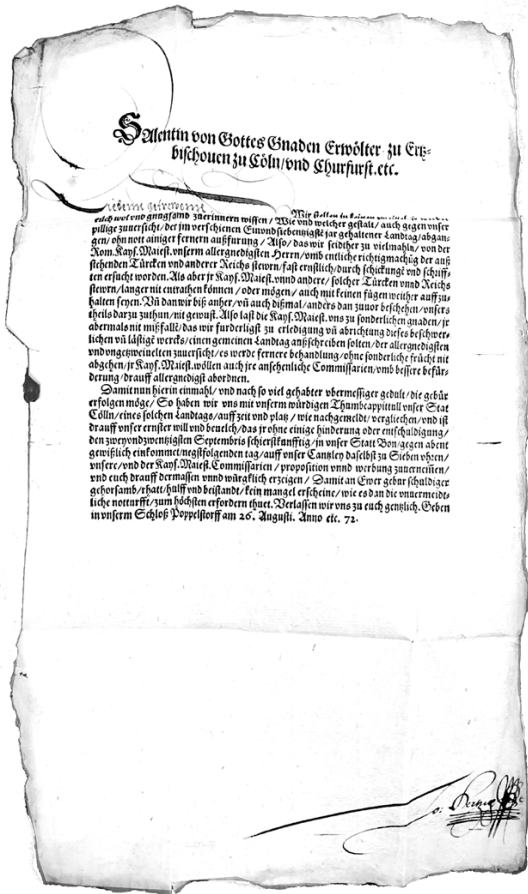 Salentin von Gottes Gnaden Erwölter zu Ertz-
bischouen zu Cöln/vnd Churfurst.etc.
Wir stellen in keinen
euch wol vnd gnugsamb zuerinnern wissen/ Wie vnd welcher gestalt/ auch gegen vnser
pillige zuuersicht/ der jm verschienen Einvndsiebentzigstē jar gehaltener Landtag/ abgan-
gen/ ohn note ainiger fernern außfurung/ Also/ das wir seidther zu vielmahln/ von der
Rom. Kays. Maiest. vnserm allergnedigsten Herrn/ vmb entliche richtigmachūg der auß
stehenden Türcken vnd anderer Reichs stewrn/ fast ernstlich/ durch schickungē vnd schriff-
ten ersucht worden. Als aber jr Kays. Maiest. vnnd andere/ solcher Türcken vnnd Reichs
stewrn/ langer nit entrathen können/ oder mögen/ auch mit keinen fügen weither auffzu-
halten seyen. Vñ dan wir biß anher/ vñ auch dißmal/ anders dan zuuor beschehen/ vnsers
theils darzu zuthun/ nit gewust. Also last die Kays. Maiest. vns zu sonderlichen gnaden/ jr
abermals nit mißfallē/ das wir furderligst zu erledigung vñ abrichtung dieses beschwer-
lichen vñ lästigē wercks/ einen gemeinen Landtag außschreiben solten/ der allergnedigsten
vnd vngezweiuelten zuuersicht/ es werde fernere behandlung/ ohne sonderliche frücht nit
abgehen/ jr Kays. Maiest. wöllen auch jre ansehenliche Commissarien/ vmb bessere befür-
derung/ drauff allergnedigst abordnen.
Damit nun hierin einmahl/ vnd nach so viel gehabter vbermessiger gedult/ die gebür
erfolgen möge/ So haben wir vns mit vnserm würdigen Thumbcappittull vnser Stat
Cölln/ eines solchen Landtags/ auff zeit vnd platz/ wie nachgemeldt/ vergliechen/ vnd ist
drauff vnser ernster will vnd beuelch/ das jr ohne einige hinderung oder entschuldigung/
den zweyvndzwentzigsten Septembris schierstkunfftig/ in vnser Statt Bon/ gegen abent
gewißlich einkommet/ negstfolgenden tag/ auff vnser Cantzley daselbst zu Sieben vhren/
vnsere/ vnd der Kays. Maiest. Commissarien/ proposition vnnd werbung zuuernemen/
vnd euch drauff dermassen vnnd würcklich erzeigen/ Damit an Ewer gebur schuldiger
gehorsamb/ rhatt/ hulff vnd beistandt/ kein mangel erscheine/ wie es dan die vnuermeidt-
liche notturfft/ zum höchsten erfordern thuet. Verlassen wir vns zu euch gentzlich. Geben
in vnserm Schloß Poppelstorff am 26. Augusti. Anno etc. 72.